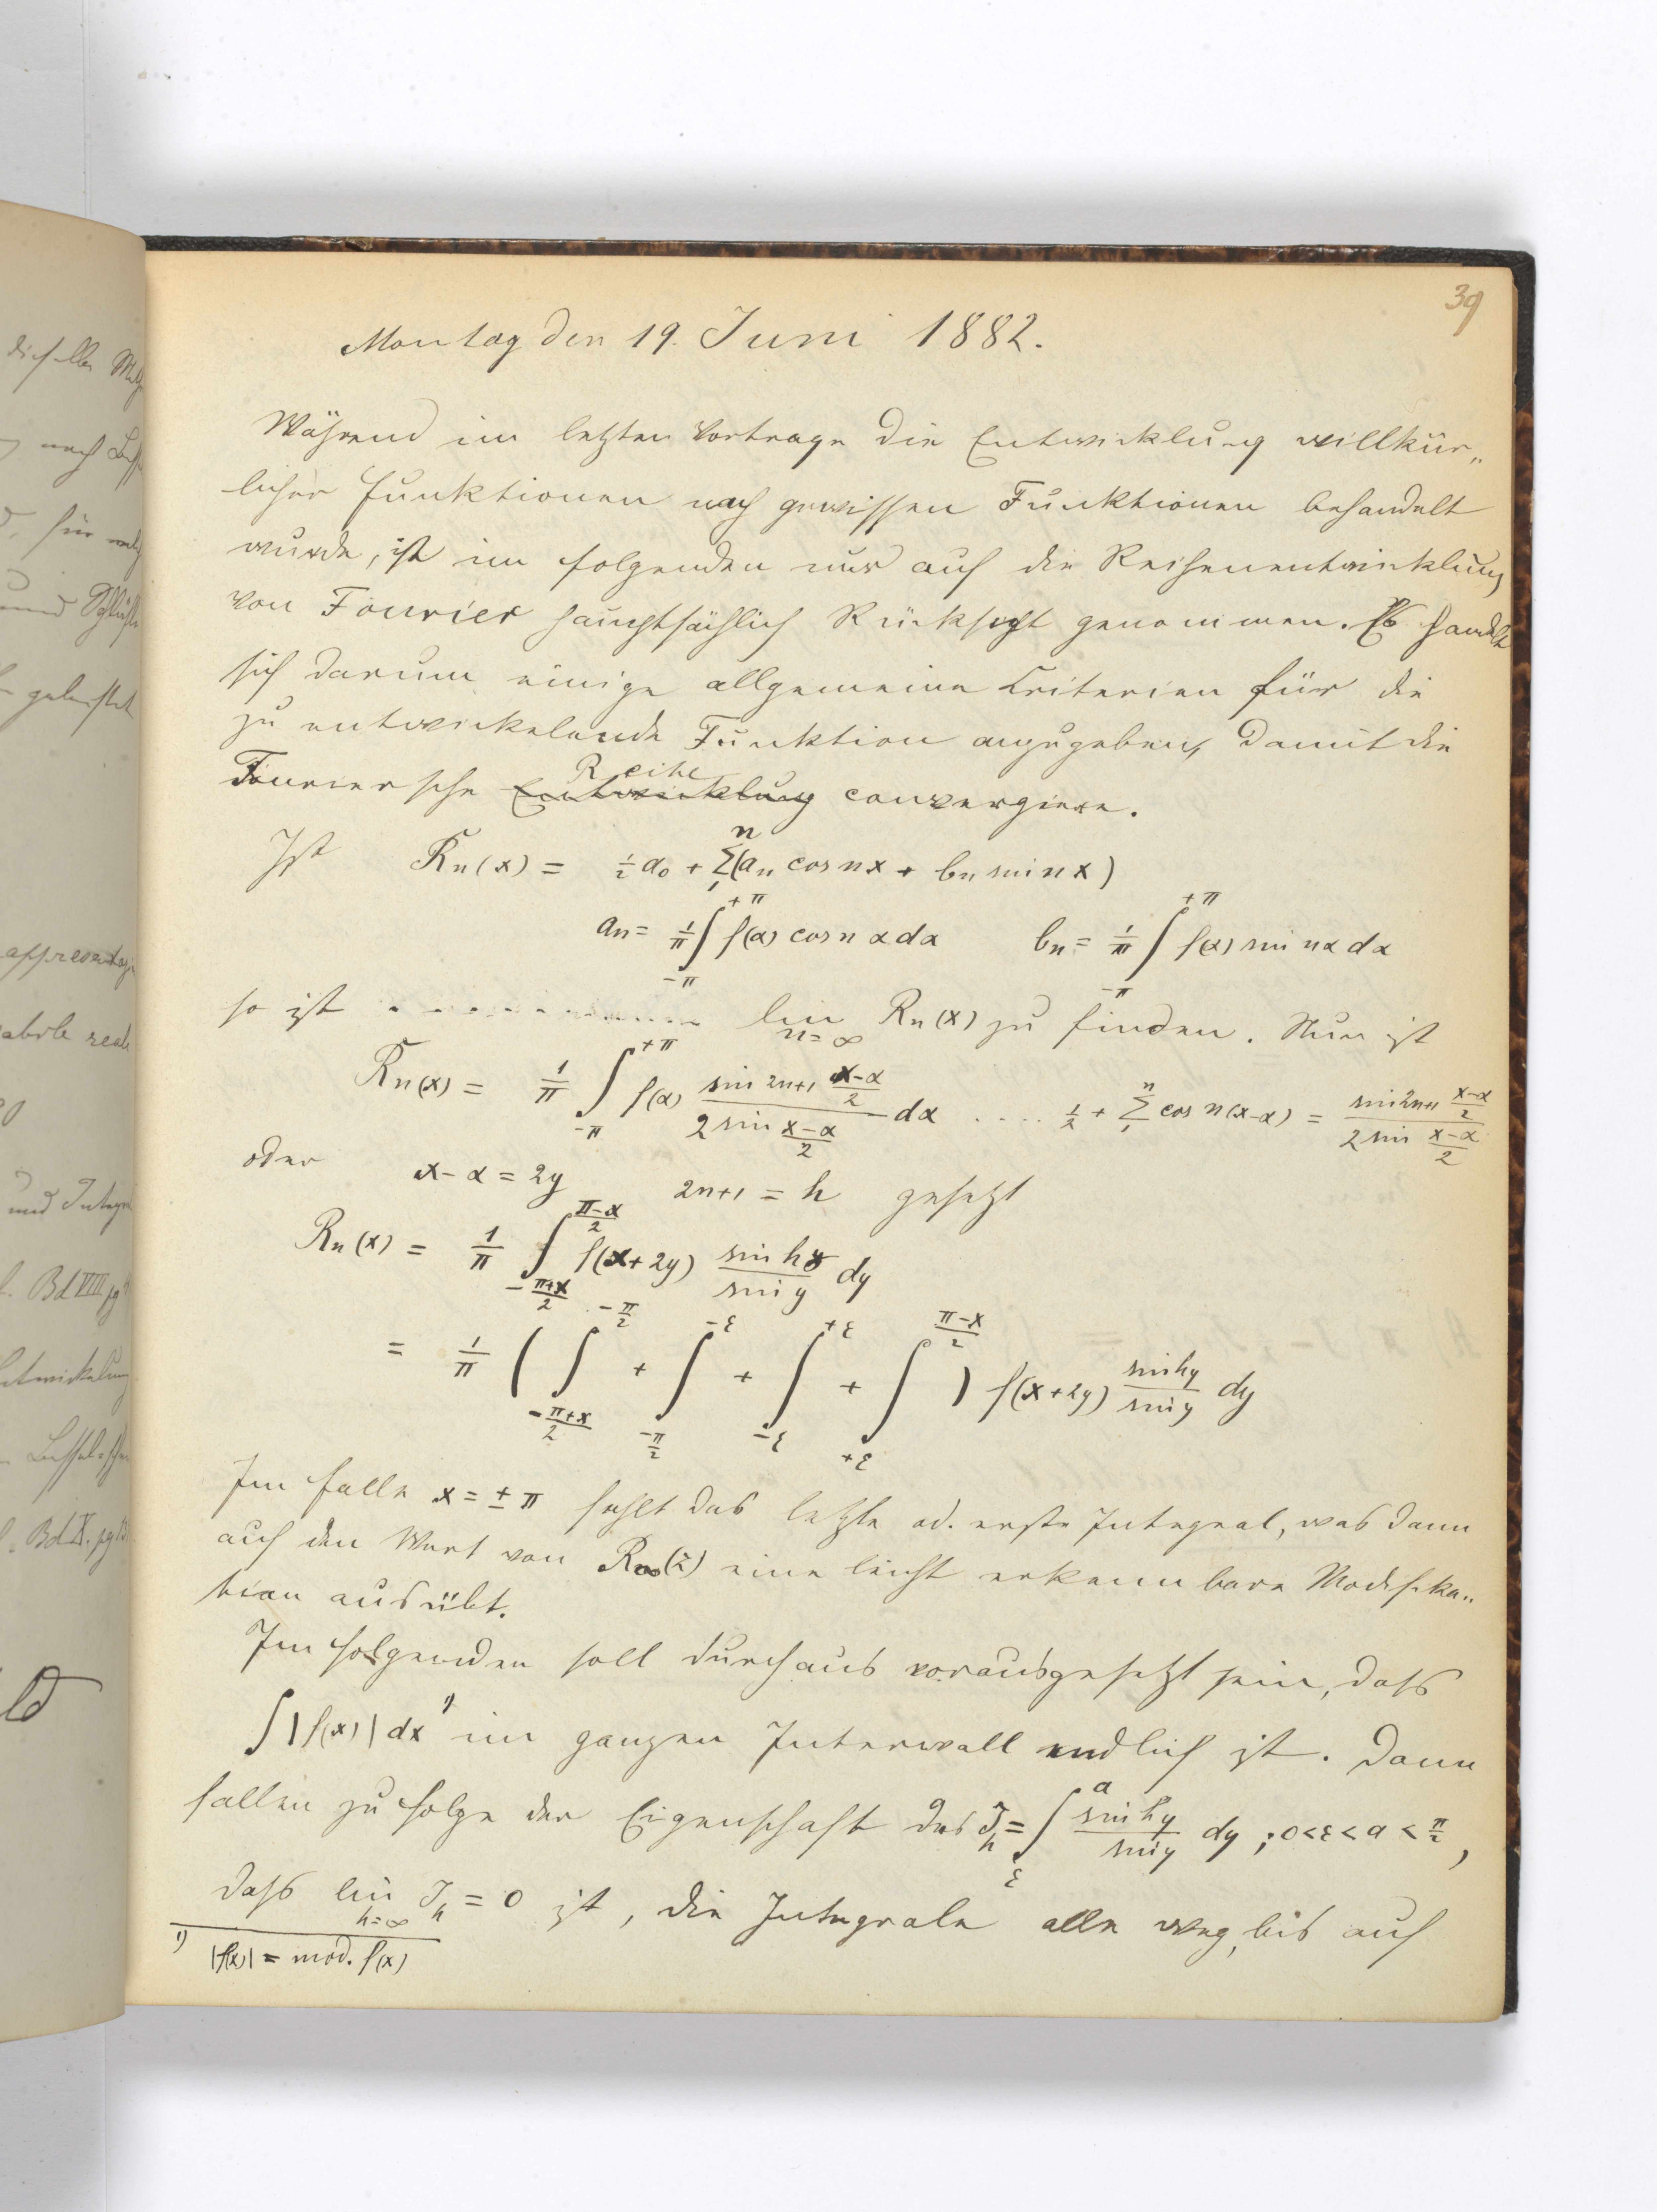 39
Montag den 19. Juni 1882.
Während im letzten Vortrage die Entwicklung willkür„
licher Funktionen nach gewissen Funktionen behandelt
wurde, ist im folgenden nur auf die Reihenentwicklung
von Fourier hauptsächlich Rücksicht genommen. Es handelt
sich darum einige allgemeine Criterien für die
zu entwickelnde Funktion anzugeben, damit die
Fourier'sche Entwicklung Reihe convergiere.
Ist Rn(x) = ½ a0 + Σ₁ⁿ (an cos nx + bn sin nx)
an = 1/π ∫_{-π}^{+π} f(α) cos n α dα bn = 1/π ∫_{-π}^{+π} f(α) sin nα dα
so ist lim_{n=∞} Rn(x) zu finden. Nun ist
Rn(x) = 1/π ∫_{-π}^{+π} f(α) (sin 2n+1 (x-α)/2)/(2 sin (x-α)/2) dα .... ½ + Σ₁ⁿ cos n(x-α) = (sin 2n+1 (x-α)/2)/(2 sin (x-α)/2)
oder x-α = 2y 2n+1 = h gesetzt
Rn(x) = 1/π ∫_{-(π+x)/2}^{(π-x)/2} f(x+2y) (sin hy)/(sin y) dy
= 1/π ( ∫_{-(π+x)/2}^{-π/2} + ∫_{-π/2}^{-ε} + ∫_{-ε}^{+ε} + ∫_{+ε}^{(π-x)/2} ) f(x+2y) (sin hy)/(sin y) dy
Im Falle x = ± π fehlt das letzte od. erste Integral, was dann
auf den Wert von R∞(z) eine leicht erkennbare Modifika„
tion ausübt.
Im folgenden soll durchaus vorausgesetzt sein, dass
∫|f(x)| dx ¹) im ganzen Intervall endlich ist. Dann
fallen zu folge der Eigenschaft des J_h = ∫_ε^a (sin hy)/(sin y) dy ; 0<ε<a<π/2,
dass lim_{h=∞} J_h = 0 ist, die Integrale alle weg, bis auf
¹) |f(x)| = mod. f(x)